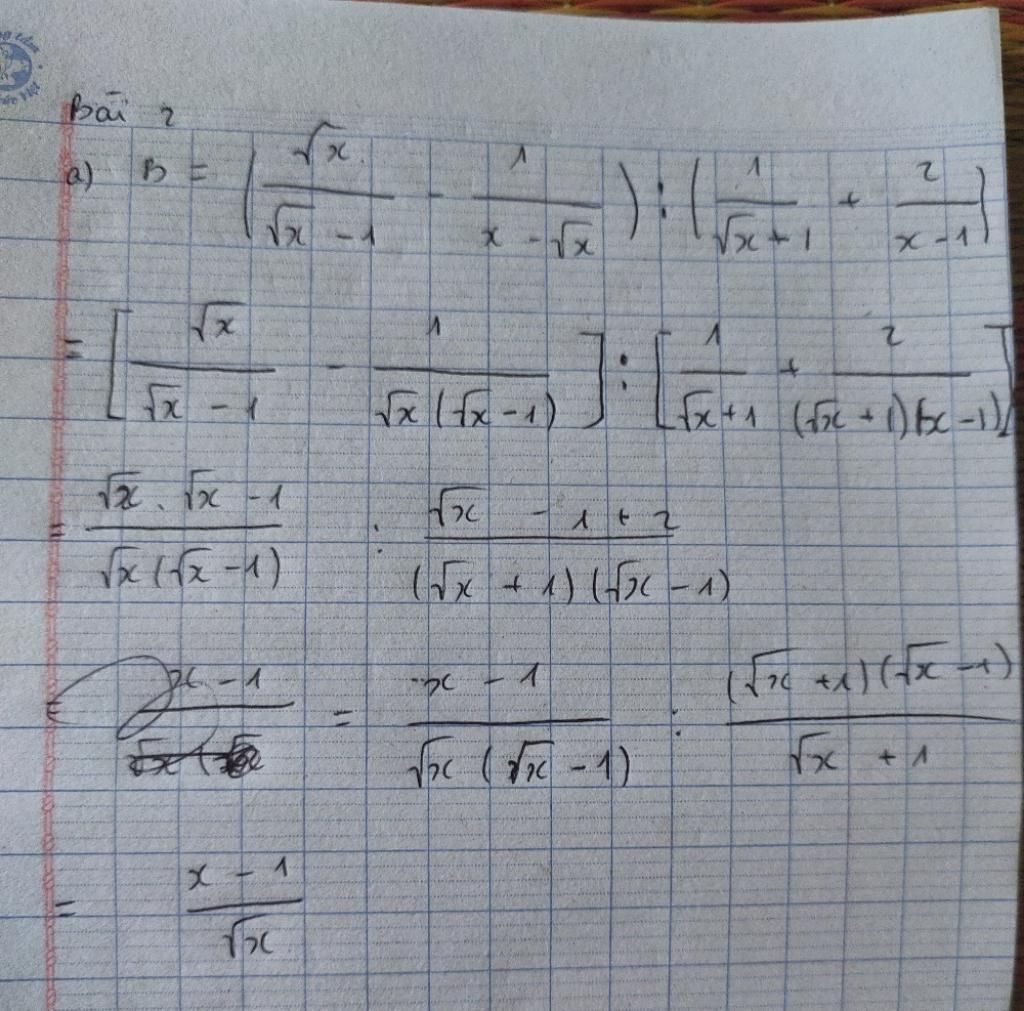 Bài 2
a) B = (√x/(√x - 1) - 1/(x - √x)) : (1/(√x + 1) + 2/(x - 1))
= [√x/(√x - 1) - 1/(√x(√x - 1))] : [1/(√x + 1) + 2/((√x + 1)(√x - 1))]
= (√x . √x - 1)/(√x(√x - 1)) : (√x - 1 + 2)/((√x + 1)(√x - 1))
= (x - 1)/(√x(√x - 1)) : ((√x + 1)(√x - 1))/(√x + 1)
= (x - 1)/√x